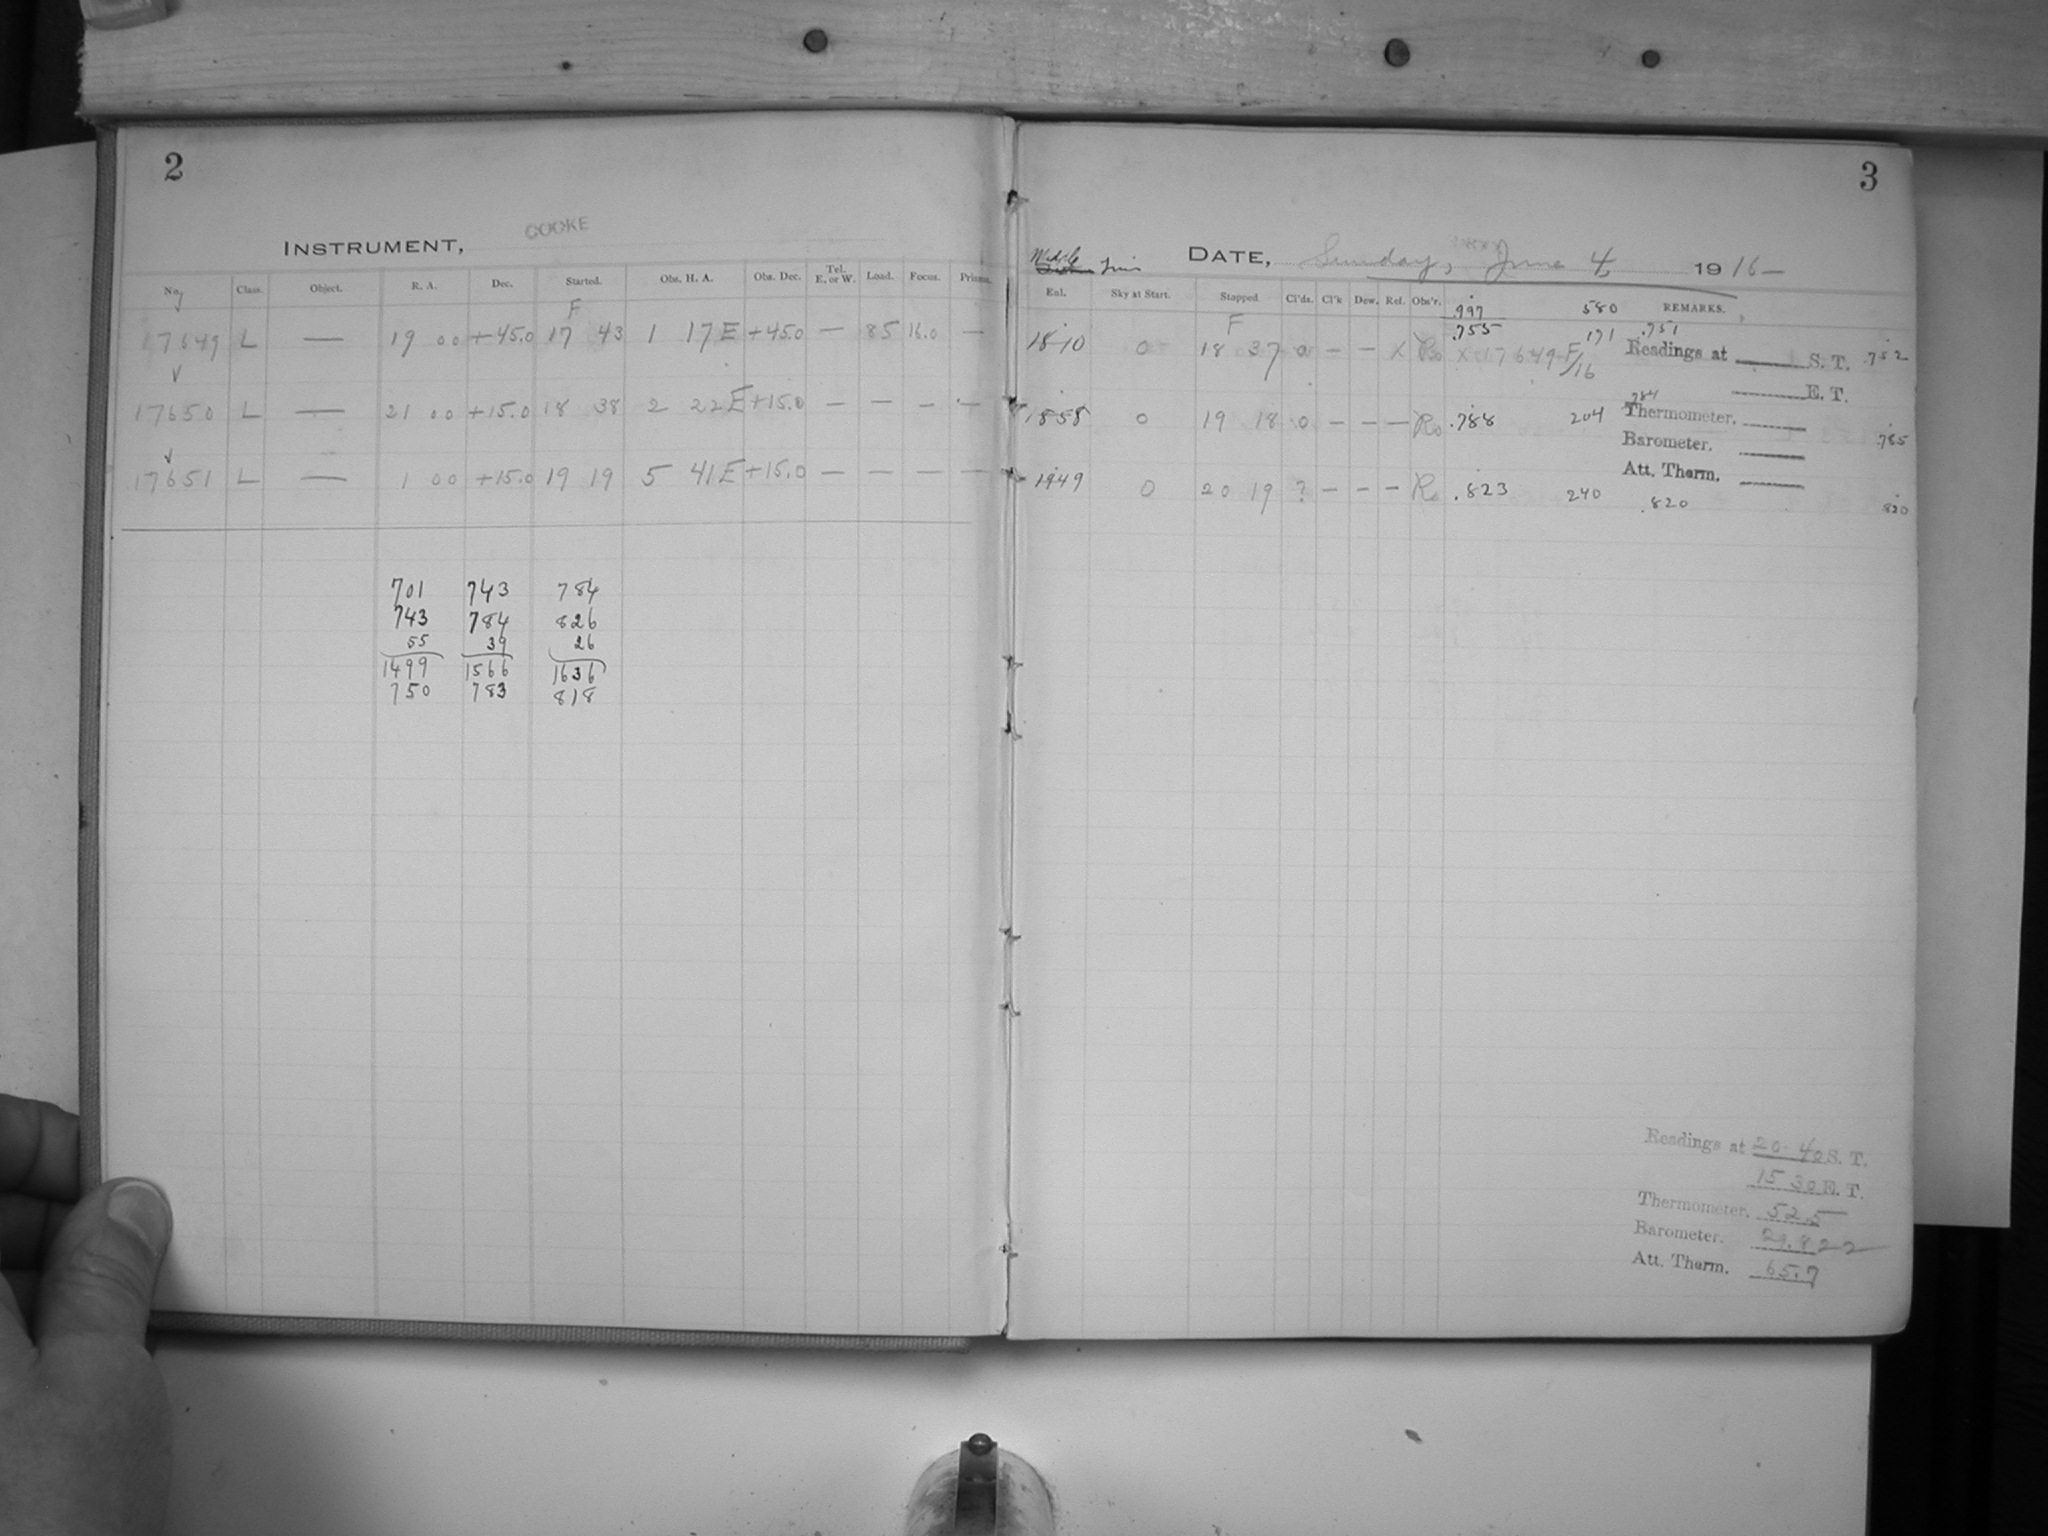 2
INSTRUMENT, COOKE
No. Class. Object. R. A. Dec. Started. Obs. H. A. Obs. Dec. Tel. E. or W. Load. Focus. Prisms.
F
17649 L — 19 00 +45.0 17 43 1 17 E +45.0 — 85 16.0 —
17650 L — 21 00 +15.0 18 38 2 22 E +15.0 — — — —
17651 L — 1 00 +15.0 19 19 5 41 E +15.0 — — — —
701 743 784
743 784 826
55 39 26
1499 1566 1636
750 783 818
3
Middle
DATE, Sunday, June 4, 1916
Ent. Sky at Start. Stopped Cl'ds. Cl'k Dew. Ref. Obs'r. REMARKS.
.997 580
F .755 171 .751
1810 0 18 37 0 — — X Ro X 17649 F/16 Readings at S. T. .752
E. T.
.784
1858 0 19 18 0 — — — Ro .788 204 Thermometer.
Barometer. .785
Att. Therm.
1949 0 20 19 ? — — — Ro .823 240 .820 .820
Readings at 20 40 S. T.
15 30 E. T.
Thermometer. 52.5
Barometer. 29.822
Att. Therm. 65.7